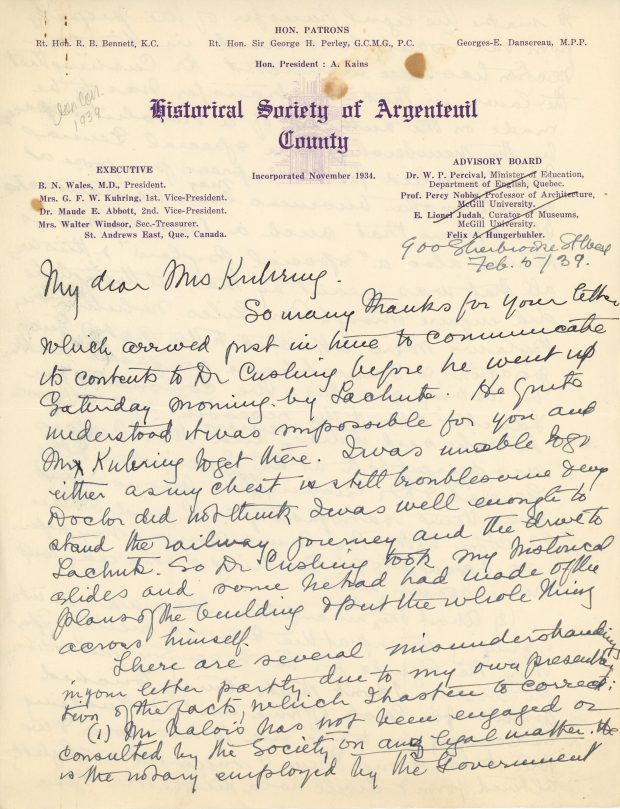 HON. PATRONS
Rt. Hon. R. B. Bennett, K.C. Rt. Hon. Sir George H. Perley, G.C.M.G., P.C. Georges-E. Dansereau, M.P.P.
Hon. President : A. Kains
1939
Historical Society of Argenteuil
County
Incorporated November 1934.
EXECUTIVE
B. N. Wales, M.D., President.
Mrs. G. F. W. Kuhring, 1st. Vice-President.
Dr. Maude E. Abbott, 2nd. Vice-President.
Mrs. Walter Windsor, Sec.-Treasurer.
St. Andrews East, Que., Canada.
ADVISORY BOARD
Dr. W. P. Percival, Minister of Education,
Department of English, Quebec.
Prof. Percy Nobbs, Professor of Architecture,
McGill University.
E. Lionel Judah, Curator of Museums,
McGill University.
Felix A. Hungerbuhler.
900 Sherbrooke St West
Feb. 5/39.
My dear Mrs Kuhring.
So many thanks for your letter
which arrived just in time to communicate
its contents to Dr Cushing before he went up
Saturday morning by Lachute. He quite
understood it was impossible for you and
Mr Kuhring to get there. I was unable to go
either as my chest is still troublesome & my
Doctor did not think I was well enough to
stand the railway journey and the drive to
Lachute. So Dr Cushing took my historical
slides and some he had had made of the
plans of the building & put the whole thing
across himself.
There are several misunderstandings
in your letter partly due to my own presenta-
tion of the facts, which I hasten to correct:
(1) Mr Valois has not been engaged or
consulted by the Society on any legal matter. He
is the notary employed by the Government